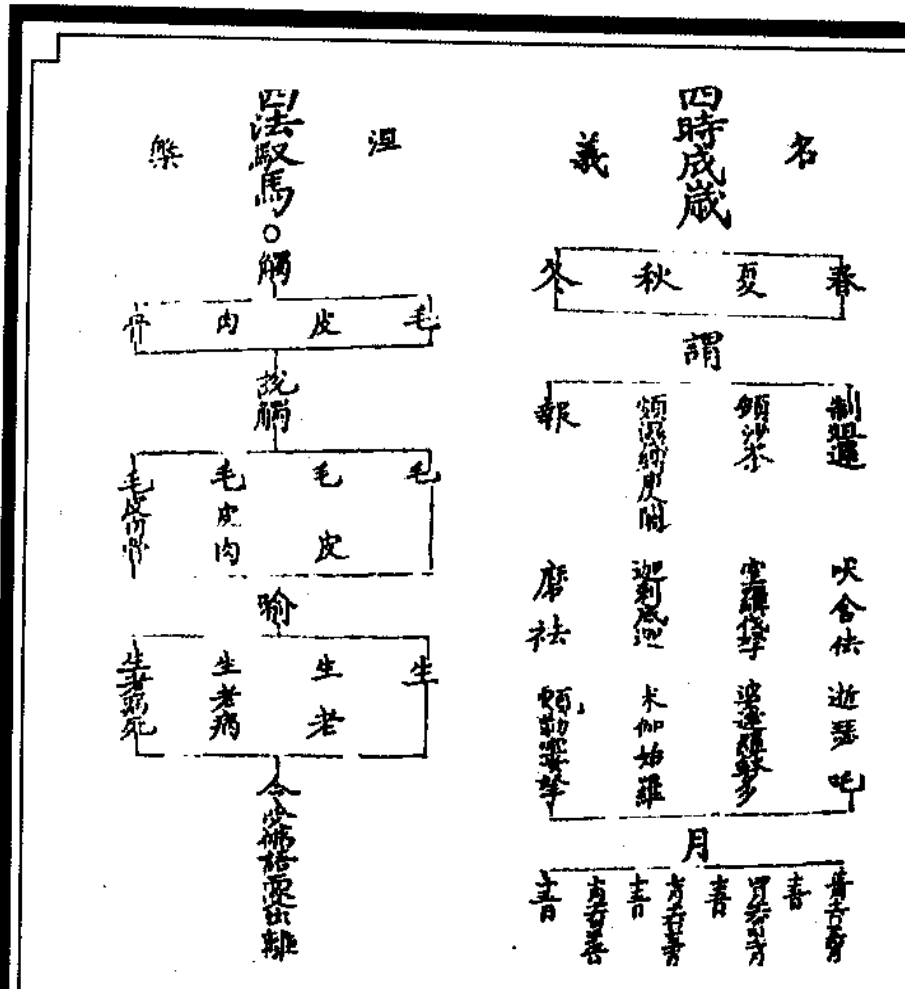 名義
四時成歲
春
夏
秋
冬
謂
制呾邏
頞沙荼
頞濕縛庾闍
報
吠舍佉
室羅伐拏
迦剌底迦
磨祛
逝瑟吒
婆達羅鉢多
末伽始羅
頗勒窶拏
月
涅槃
四法馭馬○觸
毛
皮
肉
骨
說觸
毛
毛皮
毛皮肉
毛皮肉骨
喻
生
生老
生老病
生老病死
令 佛語 出離